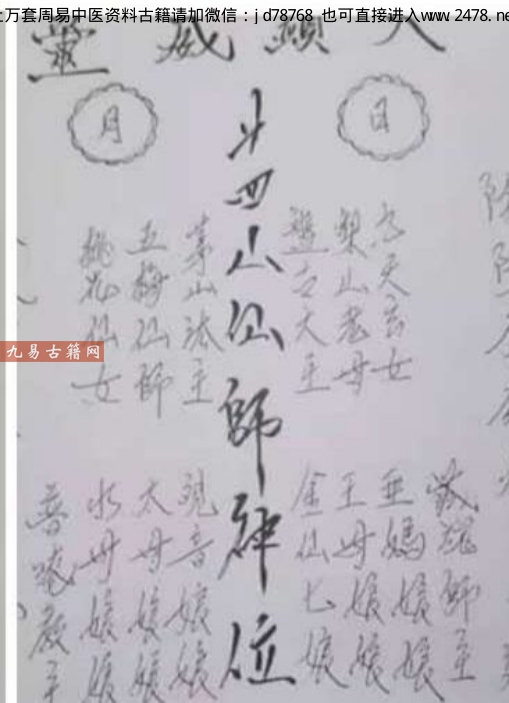 上万套周易中医资料古籍请加微信：jd78768 也可直接进入www 2478. ne
八顯威靈
日
月
廿四山仙師神位
九天玄女
梨山老母
盤古大王
茅山法主
五梅仙師
桃花仙女
師主
亜媽娘娘
王母娘娘
金仙七娘
觀音娘娘
太母娘娘
水母娘娘
普唵教主
九易古籍网